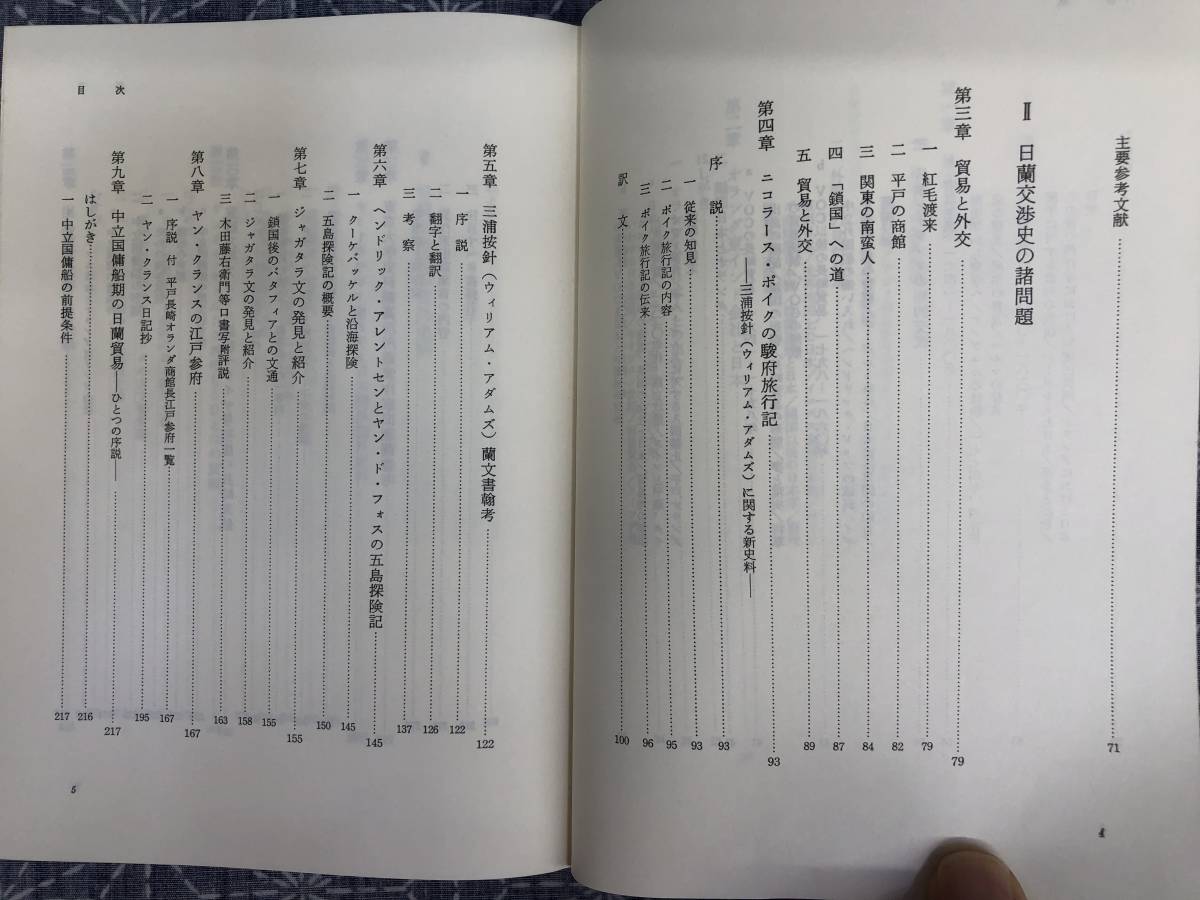 主要参考文献 71
Ⅱ 日蘭交渉史の諸問題
第三章 貿易と外交 79
一 紅毛渡来 79
二 平戸の商館 82
三 関東の南蛮人 84
四 「鎖国」への道 87
五 貿易と外交 89
第四章 ニコラース・ポイクの駿府旅行記 93
――三浦按針（ウィリアム・アダムズ）に関する新史料――
序説 93
一 従来の知見 93
二 ポイク旅行記の内容 95
三 ポイク旅行記の伝来 96
訳文 100
4
目次
第五章 三浦按針（ウィリアム・アダムズ）蘭文書翰考 122
一 序説 122
二 翻字と翻訳 126
三 考察 137
第六章 ヘンドリック・アレントセンとヤン・ド・フォスの五島探険記 145
一 クーケバッケルと沿海探険 145
二 五島探険記の概要 150
第七章 ジャガタラ文の発見と紹介 155
一 鎖国後のバタフィアとの文通 155
二 ジャガタラ文の発見と紹介 158
三 木田藤右衛門等口書写附評説 163
第八章 ヤン・クランスの江戸参府 167
一 序説 付 平戸長崎オランダ商館長江戸参府一覧 167
二 ヤン・クランス日記抄 195
第九章 中立国傭船期の日蘭貿易――ひとつの序説―― 217
はしがき 216
一 中立国傭船の前提条件 217
5